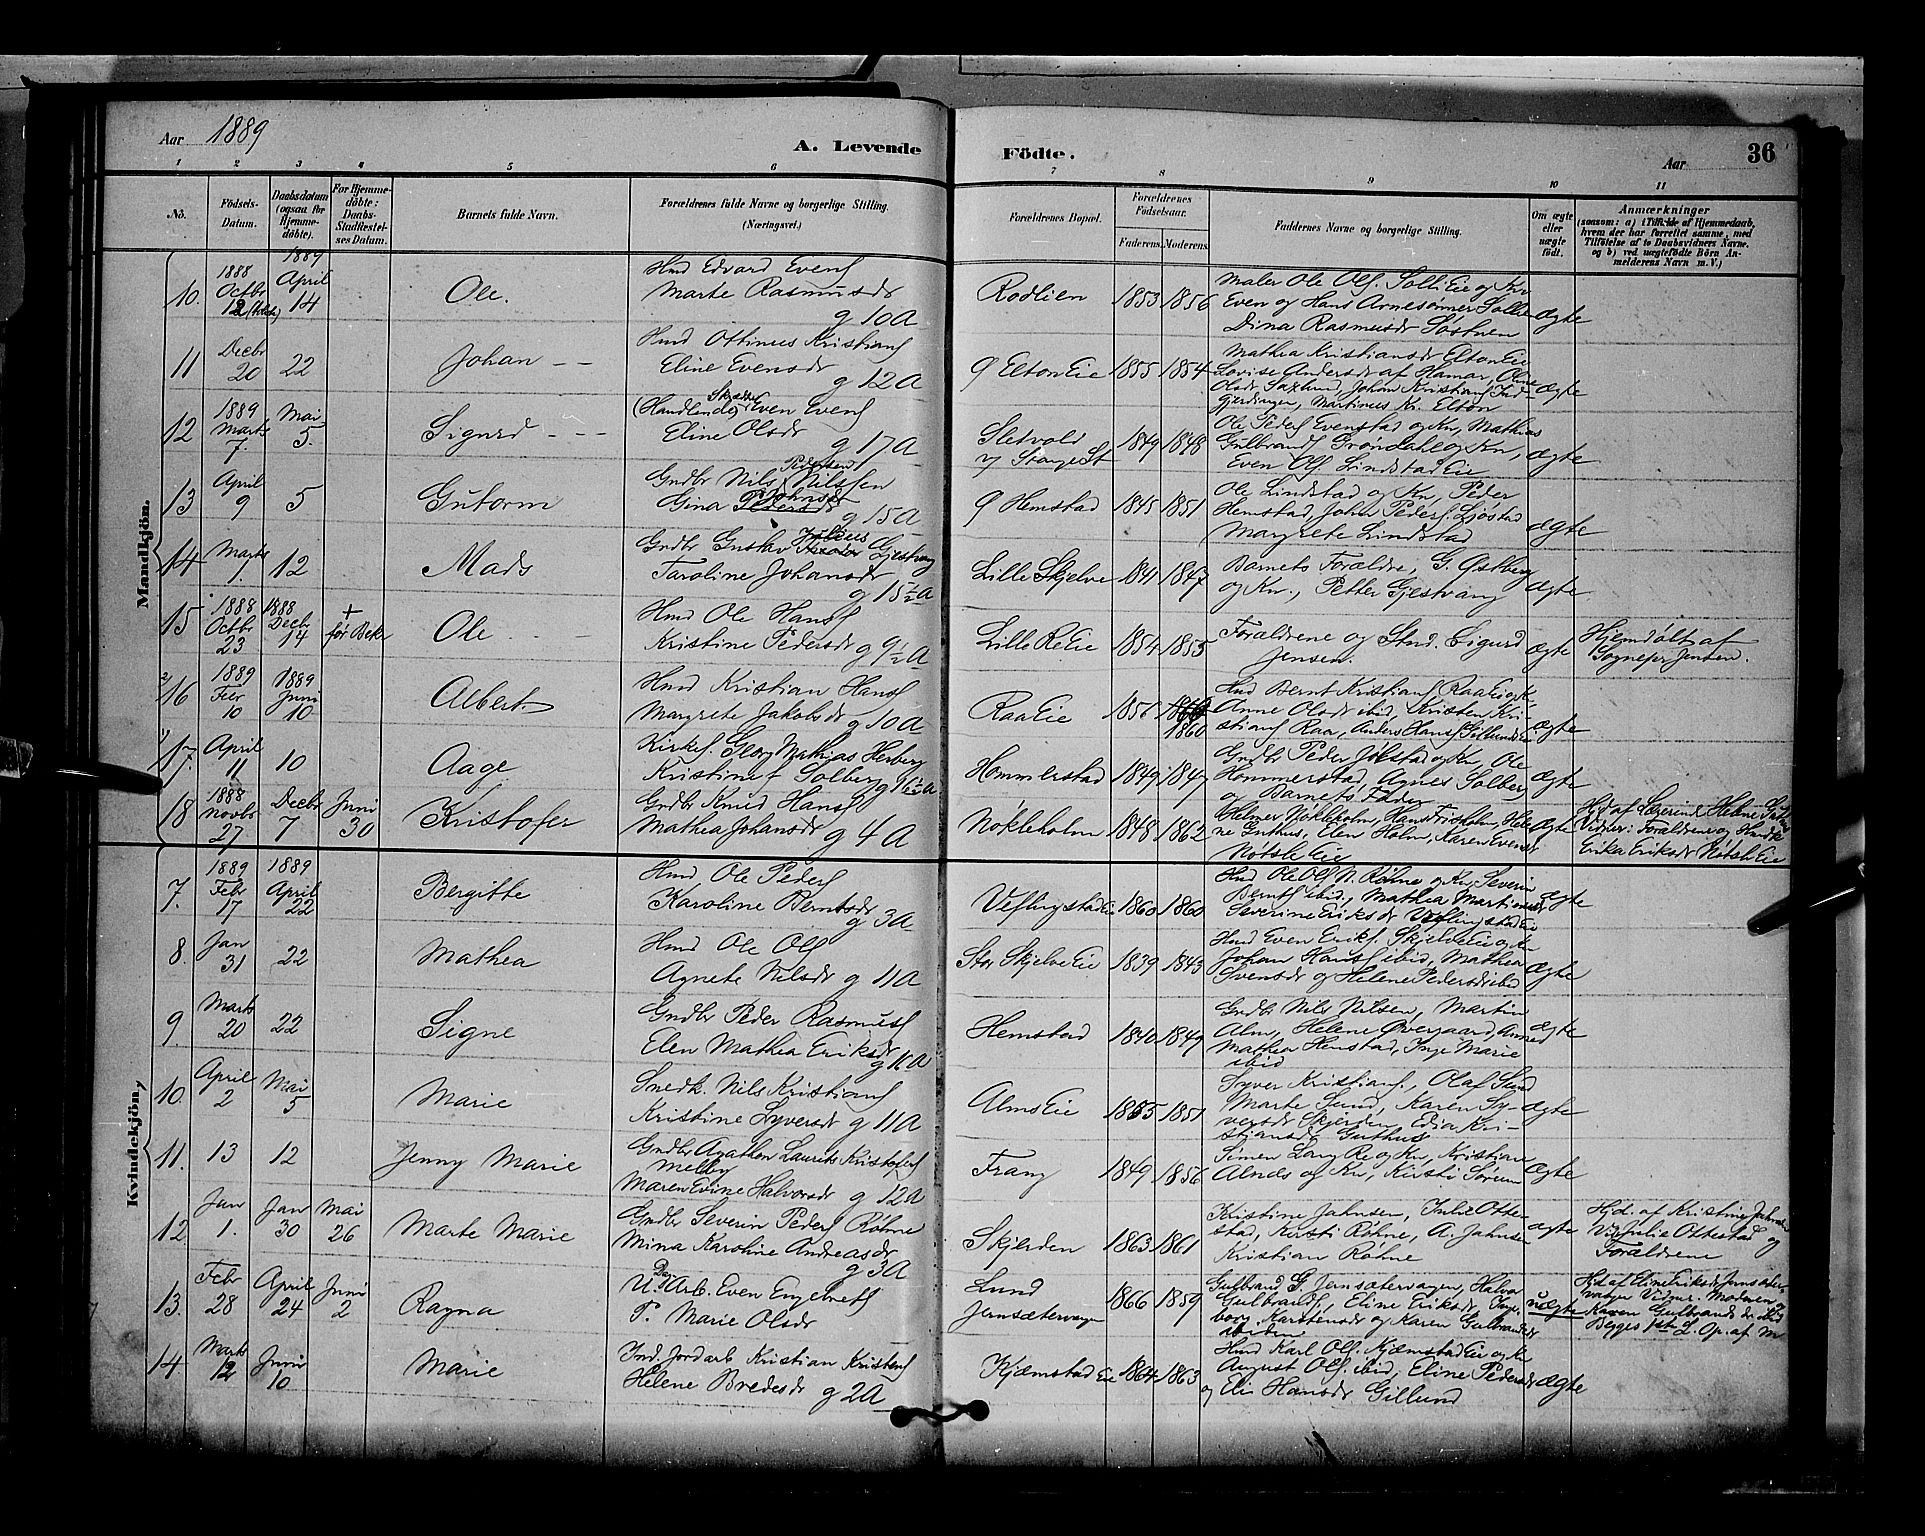 Aar 1889
A. Levende Födte.
Aar
36
1 2 3 4 5 6 7 8 9 10 11
No.
Födsels-Datum.
Daabsdatum (ogsaa for Hjemme-döbte).
For Hjemme-döbte: Daabs-Stadfæstel-ses Datum.
Barnets fulde Navn.
Forældrenes fulde Navne og borgerlige Stilling. (Næringsvei.)
Forældrenes Bopæl.
Forældrenes Födselsaar. Faderens. Moderens.
Faddernes Navne og borgerlige Stilling.
Om ægte eller uægte født.
Anmærkninger
(saasom: a) i Tilfælde af Hjemmedaab,
hvem der har forrettet samme, med
Tilföielse af to Daabsvidners Navne.
og b) ved uægtefödte Börn An-
melderens Navn m.V.)
Mandkjön.
10. 1888 Octbr 12 1889 April 14 Ole. Hmd Edvard Evens
Marte Rasmusdr g 10 A Rodlien 1853 1856 Maler Ole Ols. Solli Eie og Kv
Even og Hans Arnesønner Sollie
Dina Rasmusdr ægte
11 Decbr 20 22 Johan Hmd Ottinius Kristians
Eline Evensdr g 12 A Elton Eie 1855 1854 Mathea Kristiansdr Elton Eie
Lovise Andersdr af Hamar, Oline
Olsdr Saxlund, Johan Kristians
Martinus Kr. Elton ægte
12 1889 Marts 7. Mai 5. Sigurd (Handlende) Skrædder Even Evens
Eline Olsdr g 17 A Sletvold
v Stange St 1849 1848 Ole Peders Evenstad og Kv, Mathias
Gulbrands Grøndahl og Kv,
Even Ols. Lindstad Eie ægte
13 April 9 5 Gutorm Gndbr Nils Pedersen Nilssen
Gina Johnsdr Pedersdr g 15 A Hemstad 1845 1851 Ole Lindstad og Kv, Peder
Hemstad, John Peders. Ljøstad
Margrete Lindstad ægte
14 Marts 1. 12 Mads Gndbr Gustav Julius Gjestvang
Taroline Johansdr g 15½ A Lille Skjelve 1841 1847 Barnets Forældre, G. Østberg
og Kv., Petter Gjestvang ægte
15 1888 Octbr 23 1888 Decbr 14 + før Bekr Ole Hmd Ole Hans
Kristine Pedersdr g 9½ A Lille Re Eie 1854 1855 Forældrene og Stud. Sigurd
Jensen. ægte Hjemdøbt af
Sognepr Jensen.
16 1889 Febr 10 1889 Juni 10 Albert Hmd Kristian Hans
Margrete Jakobsdr g 10 A Raa Eie 1856 1860 Hmd Bernt Kristians, Raa Eie og Kv
Anne Olsdr ibid, Kristen Kri-
stians Raa, Anders Hans Gillund Eie ægte
17. April 11 10 Aage Kirkes. Georg Mathias Herberg
Kristine f Solberg g 16½ A Hommerstad 1849 1847 Gndbr Peder Jølstad og Kv, Ole
Hommerstad, Agnes Solberg
og Barnets Fader ægte
18 1888 Novbr 27 Decbr 7 Juni 30 Kristofer Gndbr Knud Hans
Mathea Johansdr g 4 A Nøkleholm 1848 1862 Helmer Nøkleholm, Hans Fosholm, Hele-
ne Guthus, Elen Holm, Karen Evensdr
Nøtsle Eie ægte Hjd af Lærerinde Helene
Vidner: Forældrene og
Erika Eriksdr Nøtsle Eie
Kvindekjön.
7. 1889 Febr 17 1889 April 22 Bergitte Hmd Ole Peders
Karoline Berntsdr g 3 A Veflingstad Eie 1860 1860 Hmd Ole Ols N. Røhne og Kv, Severin
Bernts ibid, Mathea Martinusdr
Severine Eriksdr Veflingstad Eie ægte
8. Jan 31 22 Mathea Hmd Ole Ols
Agnete Nilsdr g 11 A Stor Skjelve Eie 1839 1843 Hmd Even Eriks. Skjelve Eie og Kv
Johan Hans ibid, Mathea
Svensdr og Helene Pedersdr ibid ægte
9 Marts 20 22 Signe Gndbr Peder Rasmus
Elen Mathea Eriksdr g 16 A Hemstad 1840 1849 Gndbr Nils Nilsen, Martin
Alm, Helene Overgaard,
Mathea Hemstad, Inge Marie
ibid ægte
10. April 2 Mai 5 Marie Snedk. Nils Kristians
Kristine Syversdr g 11 A Alms Eie 1855 1851 Syver Kristians., Olaf Sund
Marte Sund, Karen Sy-
versdr Skjerden, Edia Kri-
stiansdr Guthus ægte
11. 13 12 Jenny Marie Gndbr Agathon Laurits Kristofers
Melby
Maren Evine Halvorsdr g 12 A Frang 1849 1856 Simen Lang Re og Kv, Kristian
Alnæs og Kv, Kirsti Sørum ægte
12. Jan 1. Jan 30 Mai 26 Marte Marie Gndbr Severin Peders Røhne
Mina Karoline Andreasdr g 3 A Skjerden 1863 1861 Kristine Jahnsen, Julie Otte-
stad, Kirsti Røhne, A. Jahnsen
Kristian Røhne ægte Hjd. af Kristine Jahnsen
Vid. Julie Ottestad og
Forældrene
13. Febr 28 April 24 Juni 2 Ragna U. Dag Arb. Even Engebrets
P. Marie Olsdr Lund
Jernsætervangen 1866 1859 Gulbrand G. Jernsætervangen, Halvor
Gulbrands, Eline Eriksdr, Inge-
borg Karstensdr og Karen Gulbrandsdr
ibidem uægte Hjd. af Eline Eriksdr Jernsæter-
vangen Vidner. Moderen og
Karen Gulbrandsdr ibid
Begges 1ste L. Op. af M
14 Marts 12 Juni 10 Marie Ind. Jordarb Kristian Kristens
Helene Bredesdr g 2 A Kjæmstad Eie 1864 1863 Hmd Karl Ols. Kjæmstad Eie og Kv
August Ols. ibid, Eline Pedersdr
og Elis Hansdr Gillund ægte